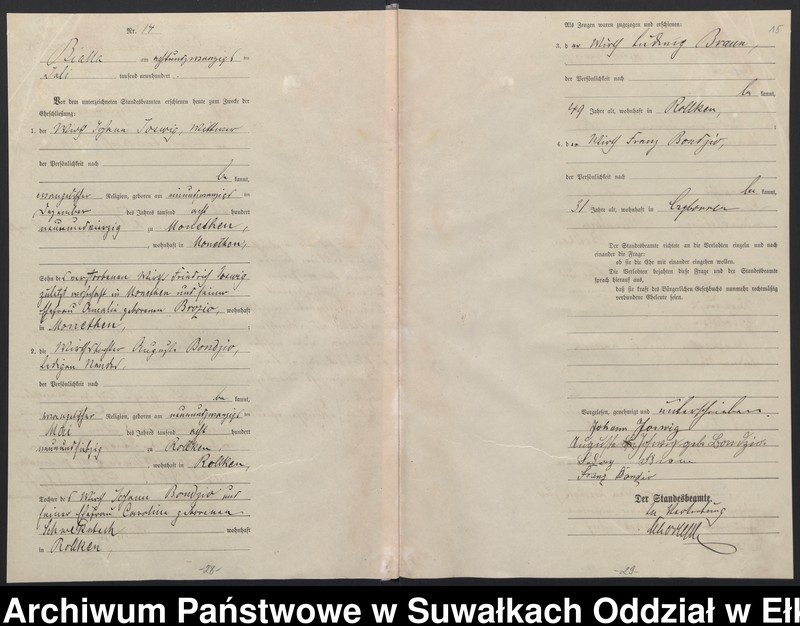 Nr. 14
Bialla am achtundzwanzigs ten
Juli tausend neunhundert
Vor dem unterzeichneten Standesbeamten erschienen heute zum Zwecke der
Eheschließung:
1. der Wirth Johann Joswig, Wittwer
der Persönlichkeit nach
be kannt,
evangelischer Religion, geboren am neunundzwanzigs ten
Dezember des Jahres tausend acht hundert
neunundvierzig zu Monethen,
, wohnhaft in Monethen,
Sohn des verstorbenen Wirths Friedrich Joswig
zuletzt wohnhaft in Monethen und seiner
Ehefrau Amalie geborenen Brozio, wohnhaft
in Monethen,
2. die Wirthstochter Auguste Bondzio,
ledigen Standes,
der Persönlichkeit nach
be kannt,
evangelischer Religion, geboren am neunundzwanzigs ten
Mai des Jahres tausend acht hundert
neunundsiebzig zu Rollken,
, wohnhaft in Rollken,
Tochter des Wirths Johann Bondzio und
seiner Ehefrau Caroline geborenen
wohnhaft
in Rollken
-28-
15
Als Zeugen waren zugezogen und erschienen:
3. der Wirth Ludwig Braun,
der Persönlichkeit nach
be kannt,
49 Jahre alt, wohnhaft in Rollken,
4. der Wirth Franz Bondzio,
der Persönlichkeit nach
be kannt,
31 Jahre alt, wohnhaft in
Der Standesbeamte richtete an die Verlobten einzeln und nach
einander die Frage:
ob sie die Ehe mit einander eingehen wollen.
Die Verlobten bejahten diese Frage und der Standesbeamte
sprach hierauf aus,
daß sie kraft des Bürgerlichen Gesetzbuchs nunmehr rechtmäßig
verbundene Eheleute seien.
Vorgelesen, genehmigt und unterschrieben.
Johann Joswig
Auguste Joswig geb. Bondzio.
Ludwig Braun
Franz Bondzio
Der Standesbeamte.
In Vertretung
-29-
Archiwum Państwowe w Suwałkach Oddział w Ełk